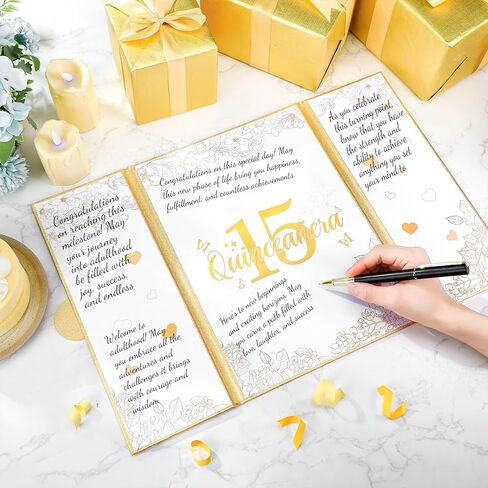 Congratulations
on reaching this
milestone! May
your journey
into adulthood
be filled with
joy, success,
and endless
Welcome to
adulthood! May
you embrace all the
adventures and
challenges it brings
with courage and
wisdom
Congratulations on this special day! May
this new phase of life bring you happiness,
fulfillment, and countless achievements.
15
Quinceañera
Here's to new beginnings
and exciting horizons. May
you carve a path filled with
love, laughter, and success
As you celebrate
this turning point,
know that you have
the strength and
ability to achieve
anything you set
your mind to